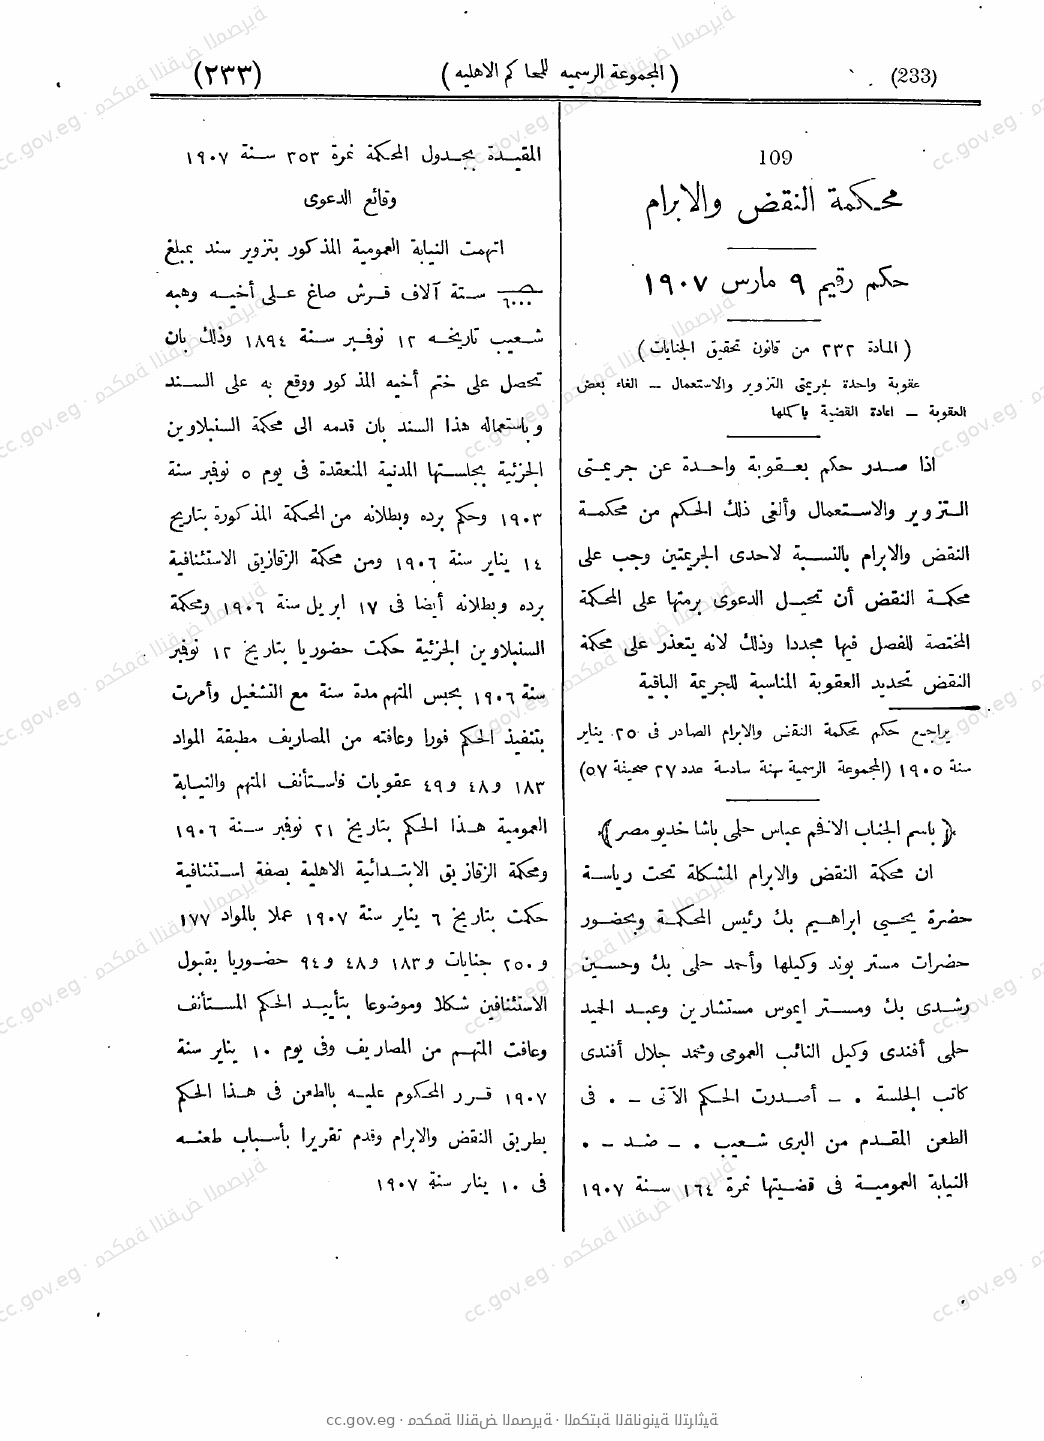 (233)
( المجموعة الرسميه للمحاكم الاهليه )
(٢٣٣)
109
محكمة النقض والابرام
حكم رقيم ٩ مارس ١٩٠٧
( المادة ٢٣٢ من قانون تحقيق الجنايات )
عقوبة واحدة لجريمتى التزوير والاستعمال – الغاء بعض
العقوبة – اعادة القضية بأكملها
اذا صدر حكم بعقوبة واحدة عن جريمتى
التزوير والاستعمال وألغى ذلك الحكم من محكمة
النقض والابرام بالنسبة لاحدى الجريمتين وجب على
محكمة النقض أن تحيل الدعوى برمتها على المحكمة
المختصة للفصل فيها مجددا وذلك لانه يتعذر على محكمة
النقض تحديد العقوبة المناسبة للجريمة الباقية
يراجع حكم محكمة النقض والابرام الصادر فى ٢٥ يناير
سنة ١٩٠٥ (المجموعة الرسمية سنة سادسة عدد ٢٧ صحيفة ٥٧)
﴿ باسم الجناب الافخم عباس حلمى باشا خديو مصر ﴾
ان محكمة النقض والابرام المشكلة تحت رياسة
حضرة يحيى ابراهيم بك رئيس المحكمة وبحضور
حضرات مستر بوند وكيلها وأحمد حلمى بك وحسين
رشدى بك ومستر ايموس مستشارين وعبد الحميد
حلمى أفندى وكيل النائب العمومى ومحمد جلال أفندى
كاتب الجلسة . – أصدرت الحكم الآتى – . فى
الطعن المقدم من البرى شعيب . – ضد – .
النيابة العمومية فى قضيتها نمرة ١٦٤ سنة ١٩٠٧
المقيدة بجدول المحكمة نمرة ٣٥٣ سنة ١٩٠٧
وقائع الدعوى
اتهمت النيابة العمومية المذكور بتزوير سند بمبلغ
٦٠٠٠ ستة آلاف قرش صاغ على أخيه وهبه
شعيب تاريخه ١٢ نوفمبر سنة ١٨٩٤ وذلك بان
تحصل على ختم أخيه المذكور ووقع به على السند
وباستعماله هذا السند بان قدمه الى محكمة السنبلاوين
الجزئية بجلستها المدنية المنعقدة فى يوم ٥ نوفمبر سنة
١٩٠٣ وحكم برده وبطلانه من المحكمة المذكورة بتاريخ
١٤ يناير سنة ١٩٠٦ ومن محكمة الزقازيق الاستئنافية
برده وبطلانه أيضا فى ١٧ ابريل سنة ١٩٠٦ ومحكمة
السنبلاوين الجزئية حكمت حضوريا بتاريخ ١٢ نوفمبر
سنة ١٩٠٦ بحبس المتهم مدة سنة مع التشغيل وأمرت
بتنفيذ الحكم فورا وعافته من المصاريف مطبقة المواد
١٨٣ و٤٨ و٤٩ عقوبات فاستأنف المتهم والنيابة
العمومية هذا الحكم بتاريخ ٢١ نوفمبر سنة ١٩٠٦
ومحكمة الزقازيق الابتدائية الاهلية بصفة استئنافية
حكمت بتاريخ ٦ يناير سنة ١٩٠٧ عملا بالمواد ١٧٧
و٢٥٠ جنايات و١٨٣ و٤٨ و٩٤ حضوريا بقبول
الاستئنافين شكلا وموضوعا بتأييد الحكم المستأنف
وعافت المتهم من المصاريف وفى يوم ١٠ يناير سنة
١٩٠٧ قرر المحكوم عليه بالطعن فى هذا الحكم
بطريق النقض والابرام وقدم تقريرا بأسباب طعنه
فى ١٠ يناير سنة ١٩٠٧
cc.gov.eg · محكمة النقض المصرية · المكتبة القانونية التراثية